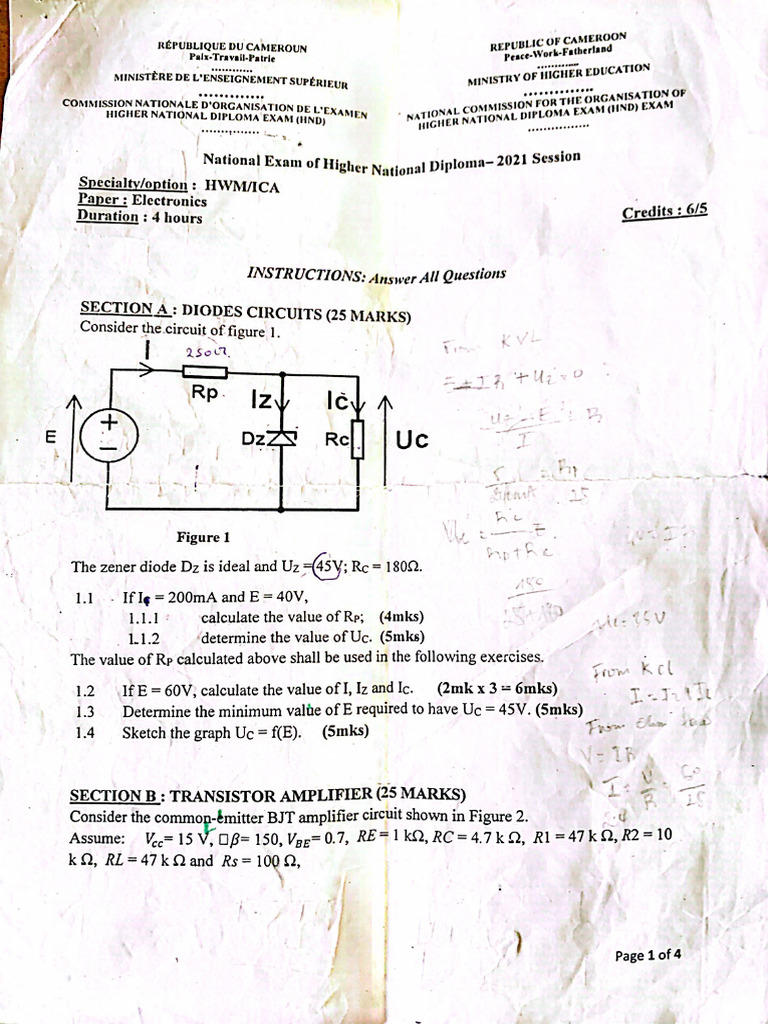 RÉPUBLIQUE DU CAMEROUN
Paix-Travail-Patrie
............
MINISTÈRE DE L'ENSEIGNEMENT SUPÉRIEUR
..............
COMMISSION NATIONALE D'ORGANISATION DE L'EXAMEN
HIGHER NATIONAL DIPLOMA EXAM (HND)
..............
REPUBLIC OF CAMEROON
Peace-Work-Fatherland
............
MINISTRY OF HIGHER EDUCATION
..............
NATIONAL COMMISSION FOR THE ORGANISATION OF
HIGHER NATIONAL DIPLOMA EXAM (HND) EXAM
..............
National Exam of Higher National Diploma– 2021 Session
Specialty/option : HWM/ICA
Paper : Electronics
Duration : 4 hours
Credits : 6/5
INSTRUCTIONS: Answer All Questions
SECTION A : DIODES CIRCUITS (25 MARKS)
Consider the circuit of figure 1.
I
250Ω.
Rp
Iz
Ic
E
+
−
Dz
Rc
Uc
Figure 1
The zener diode Dz is ideal and Uz = 45V; Rc = 180Ω.
1.1 If Ic = 200mA and E = 40V,
1.1.1 calculate the value of RP; (4mks)
1.1.2 determine the value of Uc. (5mks)
The value of RP calculated above shall be used in the following exercises.
1.2 If E = 60V, calculate the value of I, Iz and Ic. (2mk x 3 = 6mks)
1.3 Determine the minimum value of E required to have Uc = 45V. (5mks)
1.4 Sketch the graph Uc = f(E). (5mks)
From KVL
From Kcl
V = IR
SECTION B : TRANSISTOR AMPLIFIER (25 MARKS)
Consider the common-emitter BJT amplifier circuit shown in Figure 2.
Assume: Vcc= 15 V, □β= 150, VBE= 0.7, RE= 1 kΩ, RC = 4.7 k Ω, R1 = 47 k Ω, R2 = 10
k Ω, RL = 47 k Ω and Rs = 100 Ω,
Page 1 of 4